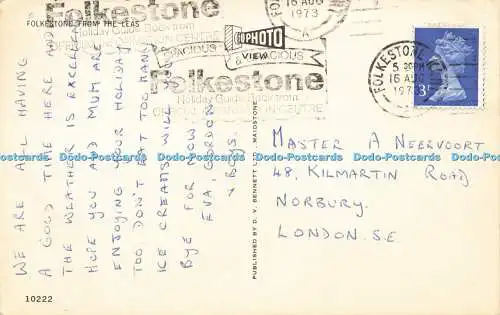 FOLKESTONE FROM THE LEAS
Folkestone
Holiday Guide Book from
PHOTO
VIEW
SPACIOUS
& GRACIOUS
Folkestone
Holiday Guide Book from
CENTRE
16 AUG
1973
A
FOLKESTONE KENT
5 30PM
16 AUG
1973
3P
WE ARE ALL HAVING
A GOOD TIME HERE AND
THE WEATHER IS EXCELLENT
HOPE YOU AND MUM ARE
ENJOYING YOUR HOLIDAY
TOO DON'T EAT TOO MANY
ICE CREAMS WILL
BYE FOR NOW
EVA, GORDON
& BOYS.
PUBLISHED BY D. V. BENNETT LTD., MAIDSTONE
MASTER A NEERVOORT
48, KILMARTIN ROAD
NORBURY.
LONDON. S.E.
10222
Dodo-Postcards Dodo-Postcards Dodo-Postcards Dodo-Postcards Dodo-Postcards Dodo-Postcards